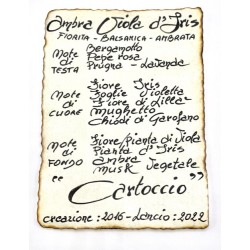 Ambra Viola d'Iris
FIORITA - BALSARICA - AMBRATA
Note di TESTA
Bergamotto
Pepe rosa
Prugna - Lavanda
Note di CUORE
Fiore Iris
Foglie Violetta
Fiore di lillà
Mughetto
Chiodi di Garofano
Note di FONDO
Fiore/pianta di Viola
Pianta d'Iris
Ambra
Musk Vegetale
"Cartoccio"
creazione: 2016 - Lancio: 2022